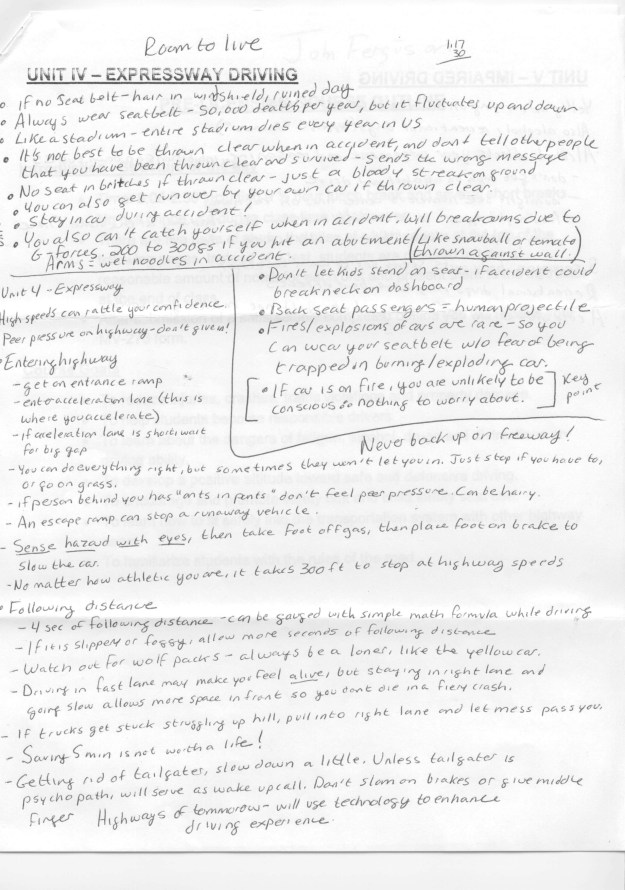 Room to live
1:17
30
UNIT IV – EXPRESSWAY DRIVING
• If no seat belt - hair in windshield, ruined day
• Always wear seatbelt - 50,000 deaths per year, but it fluctuates up and down
• Like a stadium - entire stadium dies every year in US
• It's not best to be thrown clear when in accident, and don't tell other people
that you have been thrown clear and survived - sends the wrong message
• No seat in britches if thrown clear - just a bloody streak on ground
• You can also get run over by your own car if thrown clear.
• Stay in car during accident!
• You also can't catch yourself when in accident, will break arms due to
G-forces. 200 to 300gs if you hit an abutment (Like snowball or tomato
thrown against wall.)
Arms = wet noodles in accident.
Unit 4 - Expressway
High speeds can rattle your confidence.
Peer pressure on highway - don't give in!
• Entering highway
- get on entrance ramp
- enter acceleration lane (this is
where you accelerate)
- if acceleration lane is short, wait
for big gap
• Don't let kids stand on seat - if accident could
break neck on dashboard
• Back seat passengers = human projectile
• Fires/explosions of cars are rare - so you
can wear your seatbelt w/o fear of being
trapped in burning/exploding car.
[• If car is on fire, you are unlikely to be
conscious so nothing to worry about.] Key
point
Never back up on freeway!
- You can do everything right, but sometimes they won't let you in. Just stop if you have to,
or go on grass.
- if person behind you has "ants in pants" don't feel peer pressure. Can be hairy.
- An escape ramp can stop a runaway vehicle.
- Sense hazard with eyes, then take foot off gas, then place foot on brake to
slow the car.
- No matter how athletic you are, it takes 300 ft to stop at highway speeds
• Following distance
- 4 sec of following distance - can be gauged with simple math formula while driving
- If it is slippery or foggy, allow more seconds of following distance
- Watch out for wolf packs - always be a loner, like the yellow car.
- Driving in fast lane may make you feel alive, but staying in right lane and
going slow allows more space in front so you dont die in a fiery crash.
- If trucks get stuck struggling up hill, pull into right lane and let mess pass you.
- Saving 5 min is not worth a life!
- Getting rid of tailgater, slow down a little. Unless tailgater is
psychopath, will serve as wake up call. Don't slam on brakes or give middle
finger
Highways of tommorow - will use technology to enhance
driving experience.